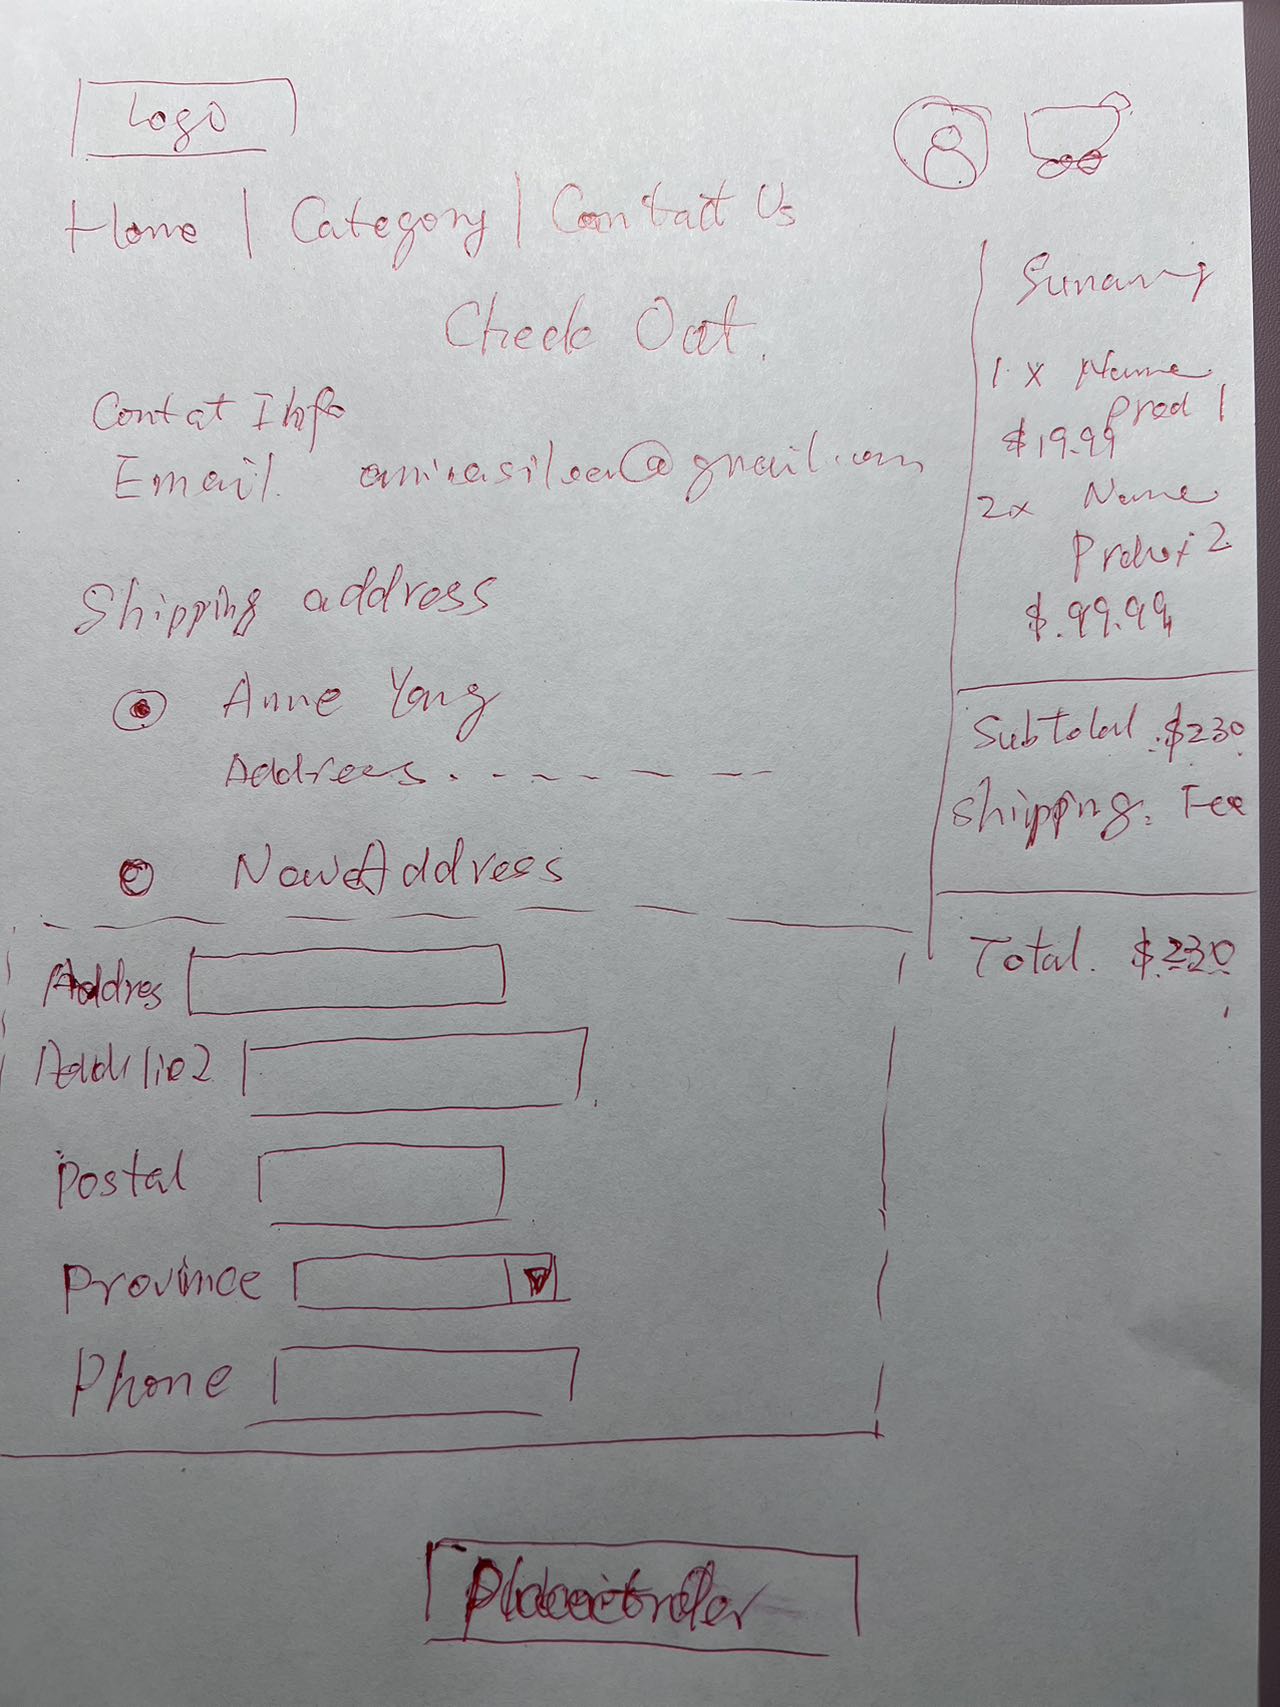 Logo
Home | Category | Contact Us
Check Out.
Contat Info
Email. @gmail.com
Shipping address
Anne Yong
Address. - - - - - -
New Address
Addres
Addr lie2
Postal
Province
Phone
Place order
Sumary
1 x Name
Prod 1
$19.99
2x Name
Product 2
$.99.99
Subtotal $230
Shipping. Fee
Total. $230